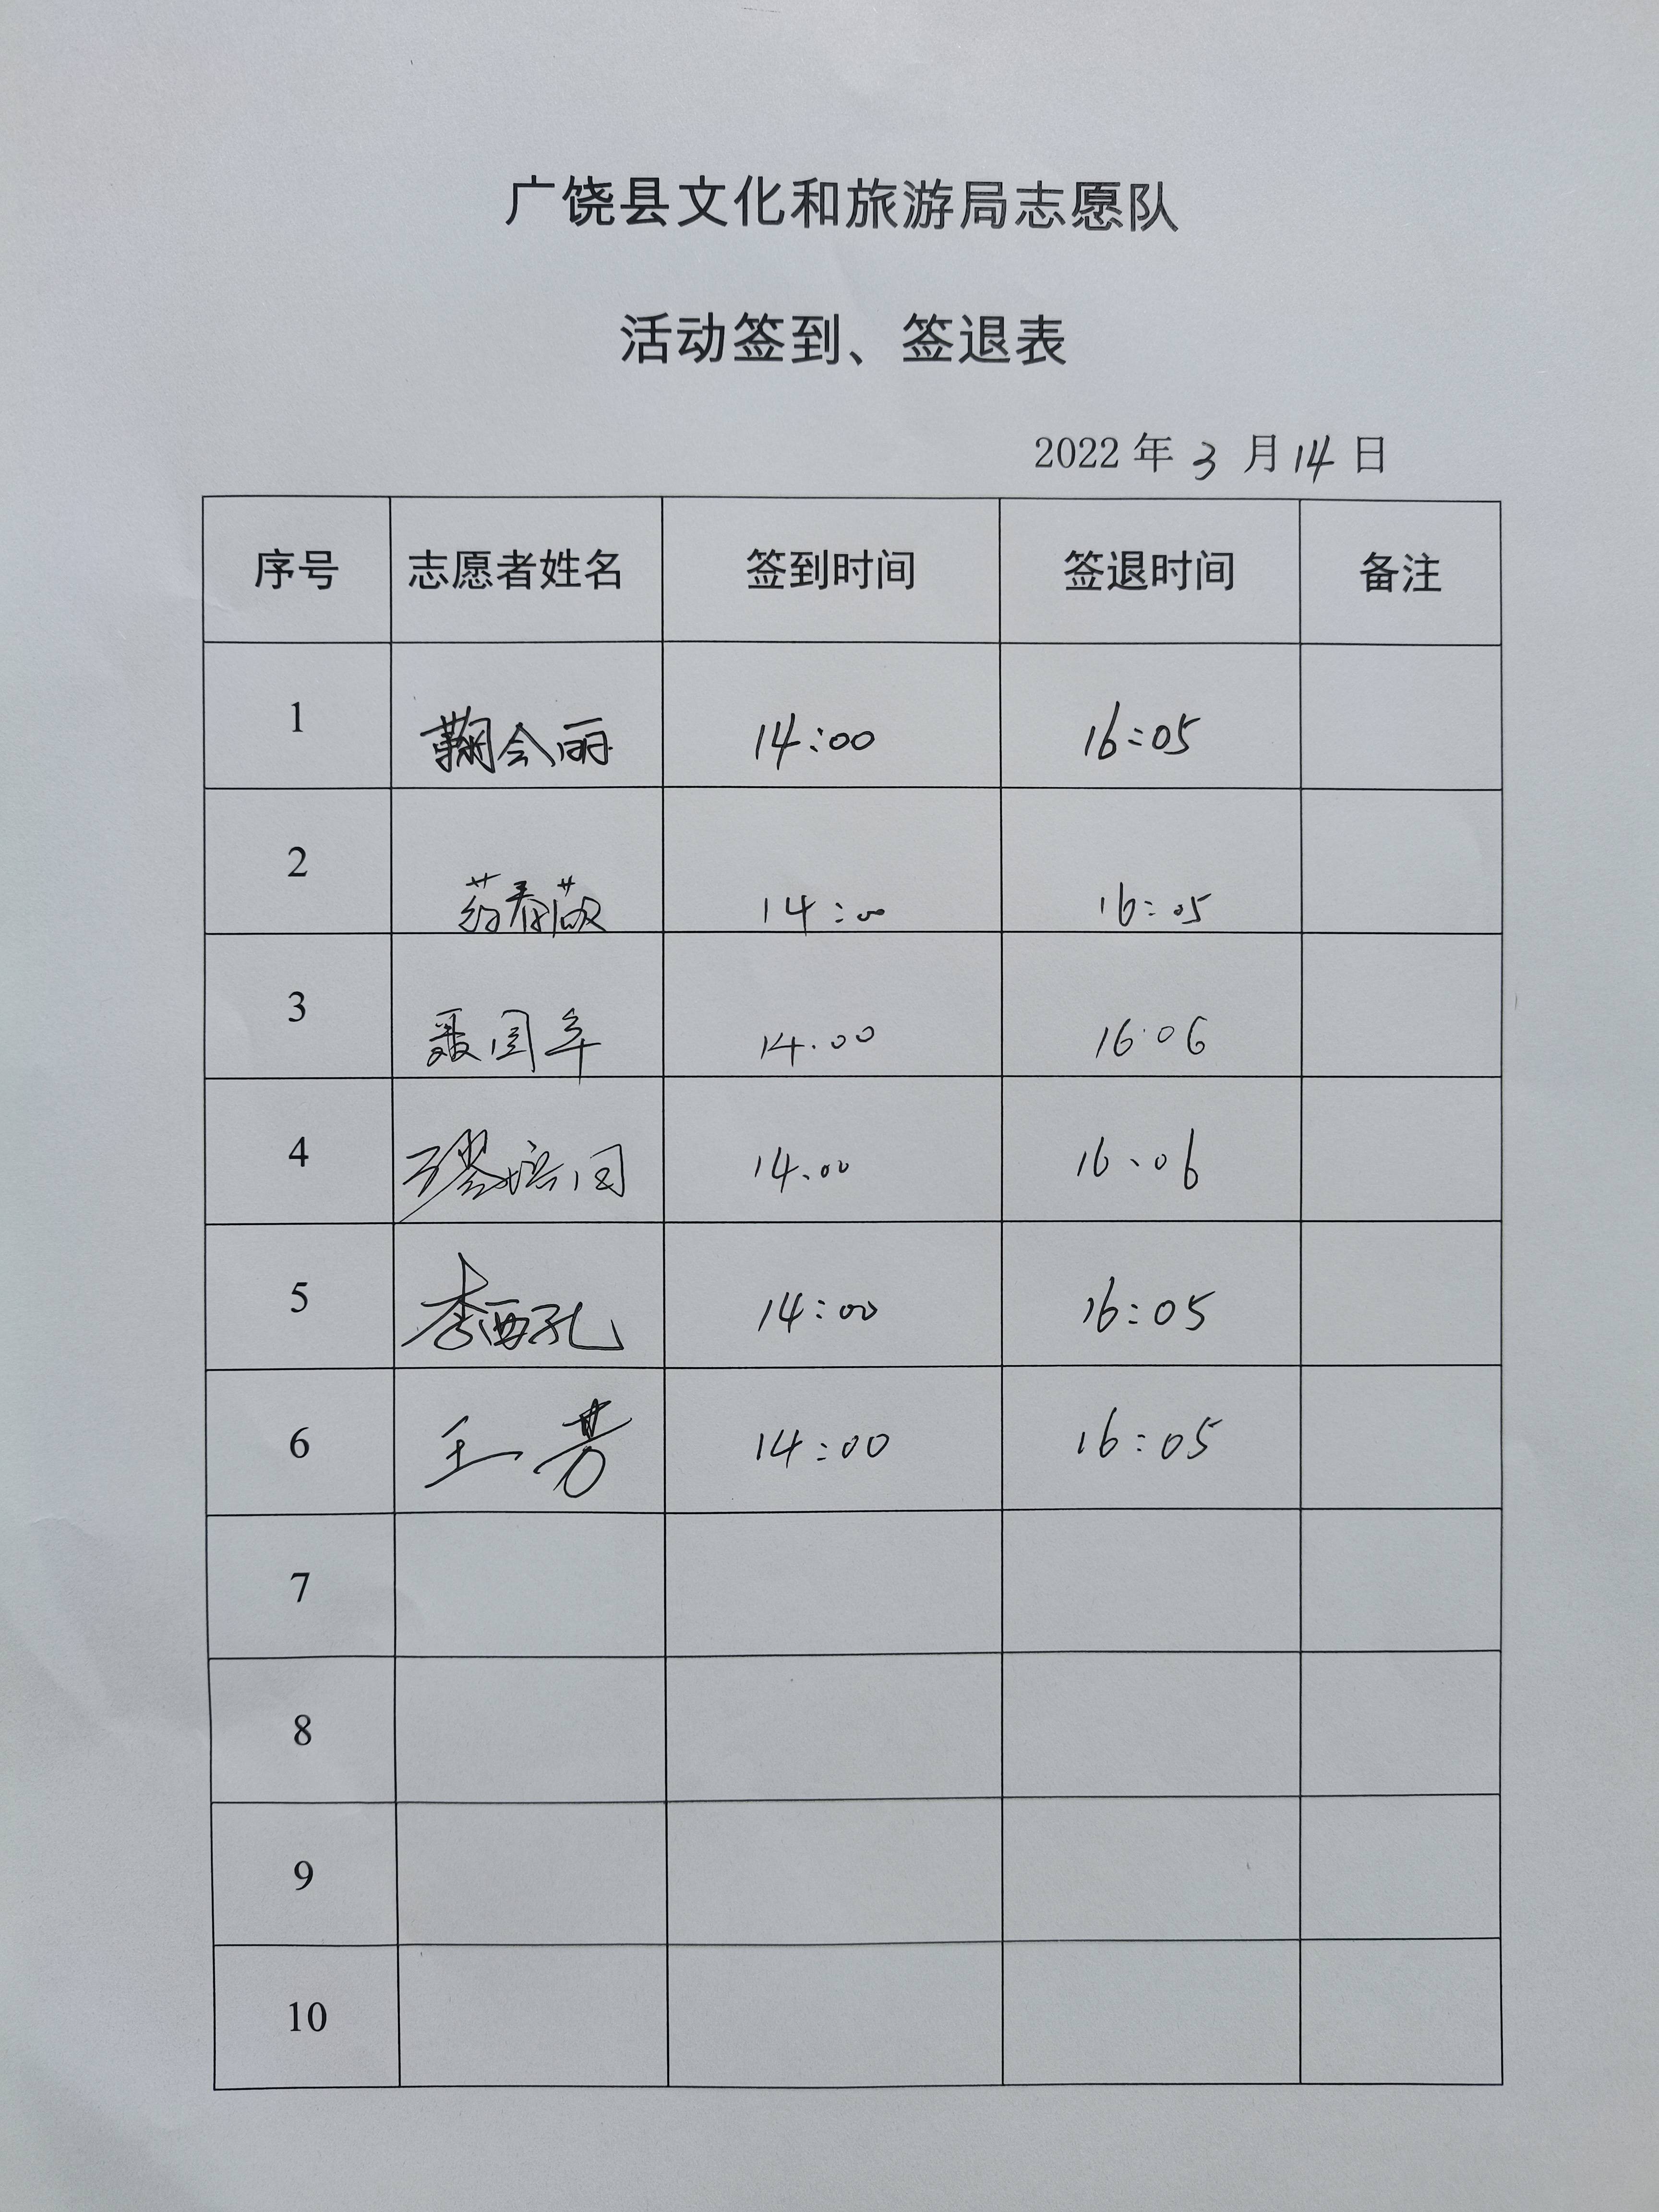 广饶县文化和旅游局志愿队
活动签到、签退表
2022 年 3 月 14 日
序号 志愿者姓名 签到时间 签退时间 备注
1 鞠会丽 14:00 16:05
2 14:00 16:05
3 聂国年 14.00 16:06
4 14.00 16.06
5 李西孔 14:00 16:05
6 王芳 14:00 16:05
7
8
9
10